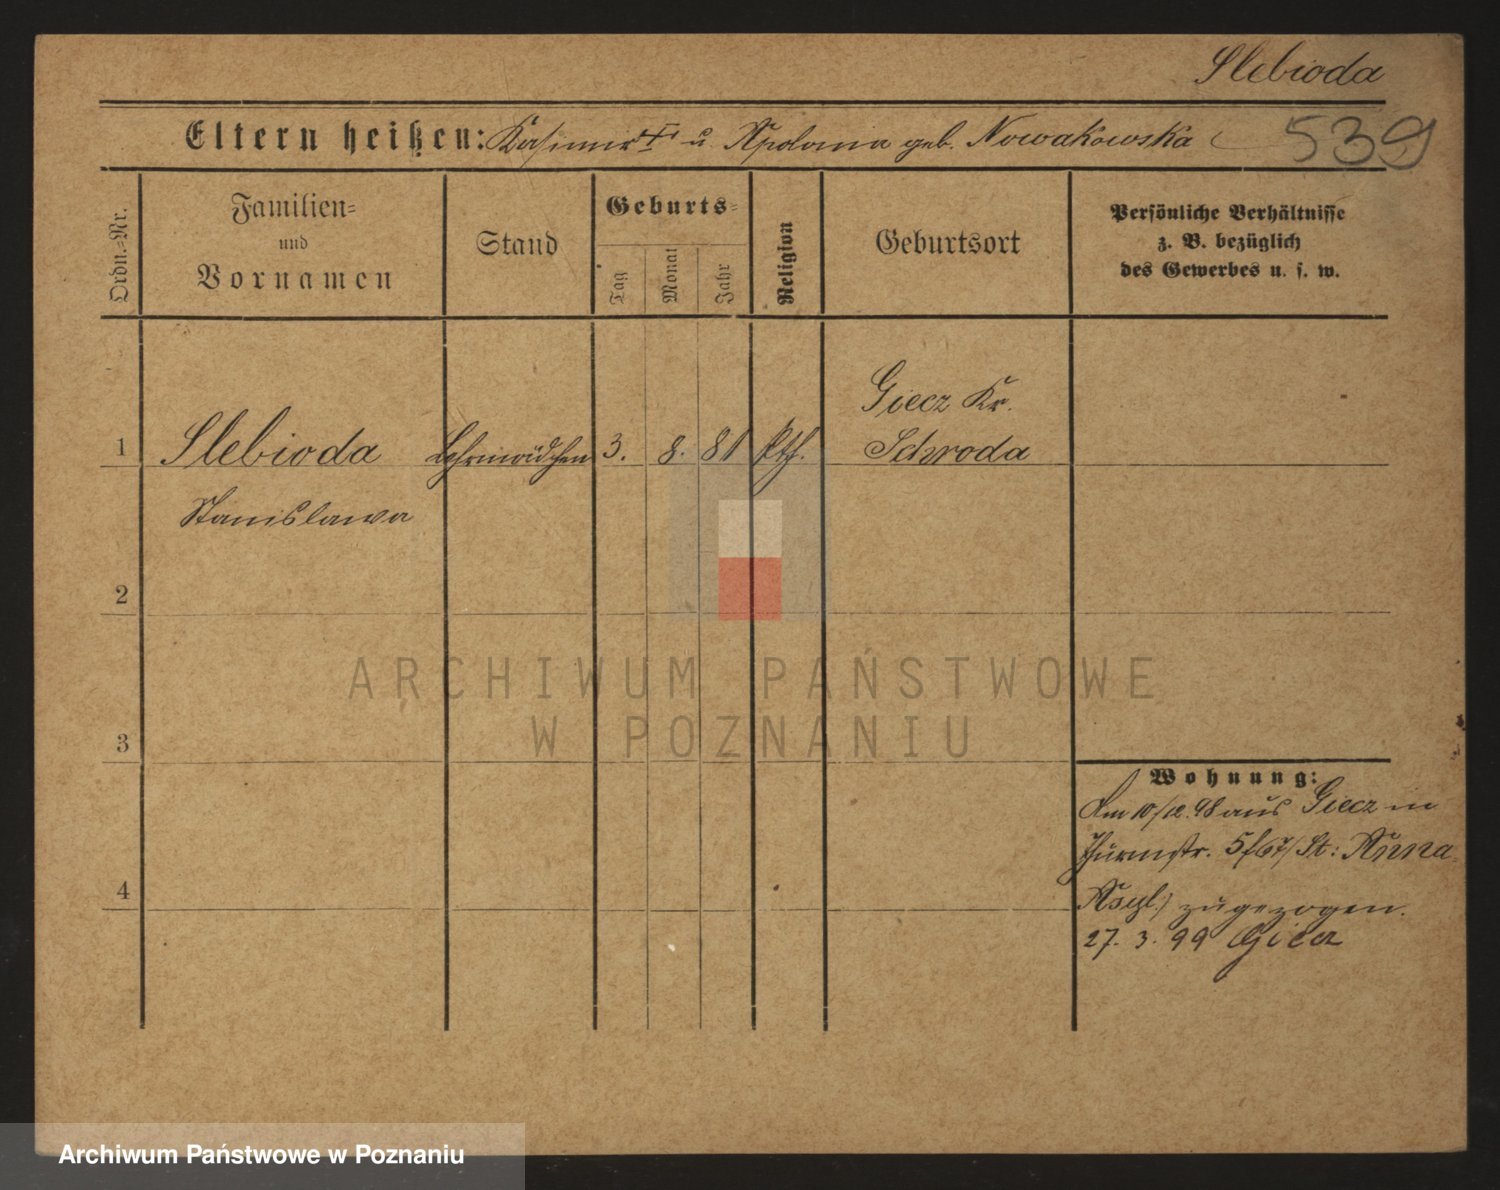 Slebioda
Eltern heißen: Kasimir † u. Apolonia geb. Nowakowska 539
Ordn.=Nr.
Familien=
und
Vornamen
Stand
Geburts=
Tag
Monat
Jahr
Religion
Geburtsort
Persönliche Verhältnisse
z. B. bezüglich
des Gewerbes u. s. w.
Giecz Kr.
1 Slebioda Lehrmädchen 3. 8. 81 kth. Schroda
Stanislawa
2
ARCHIWUM PAŃSTWOWE
W POZNANIU
3
Wohnung:
Am 10/12.98 aus Giecz in
Thurmstr. 5/6 St: Anna
4
Asyl) zugezogen.
27. 3. 99 Giecz
Archiwum Państwowe w Poznaniu